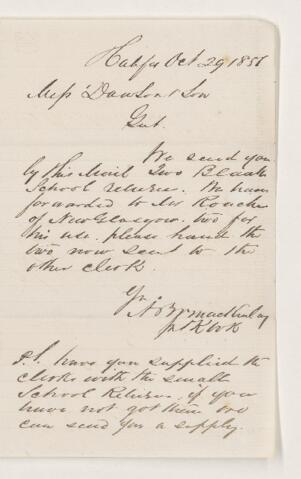 Halifax Oct 29 1856
Mess Dawson & Son
Gent.
We send you
by this Mail two Blank
School returns. We have
forwarded to Mr Roache
of New Glasgow two for
his use. please hand the
two now sent to the
other clerk.
Yrs
A & W MacKinlay
P.S. have you supplied the
clerks with the small
School Returns, if you
have not got them we
can send you a supply.